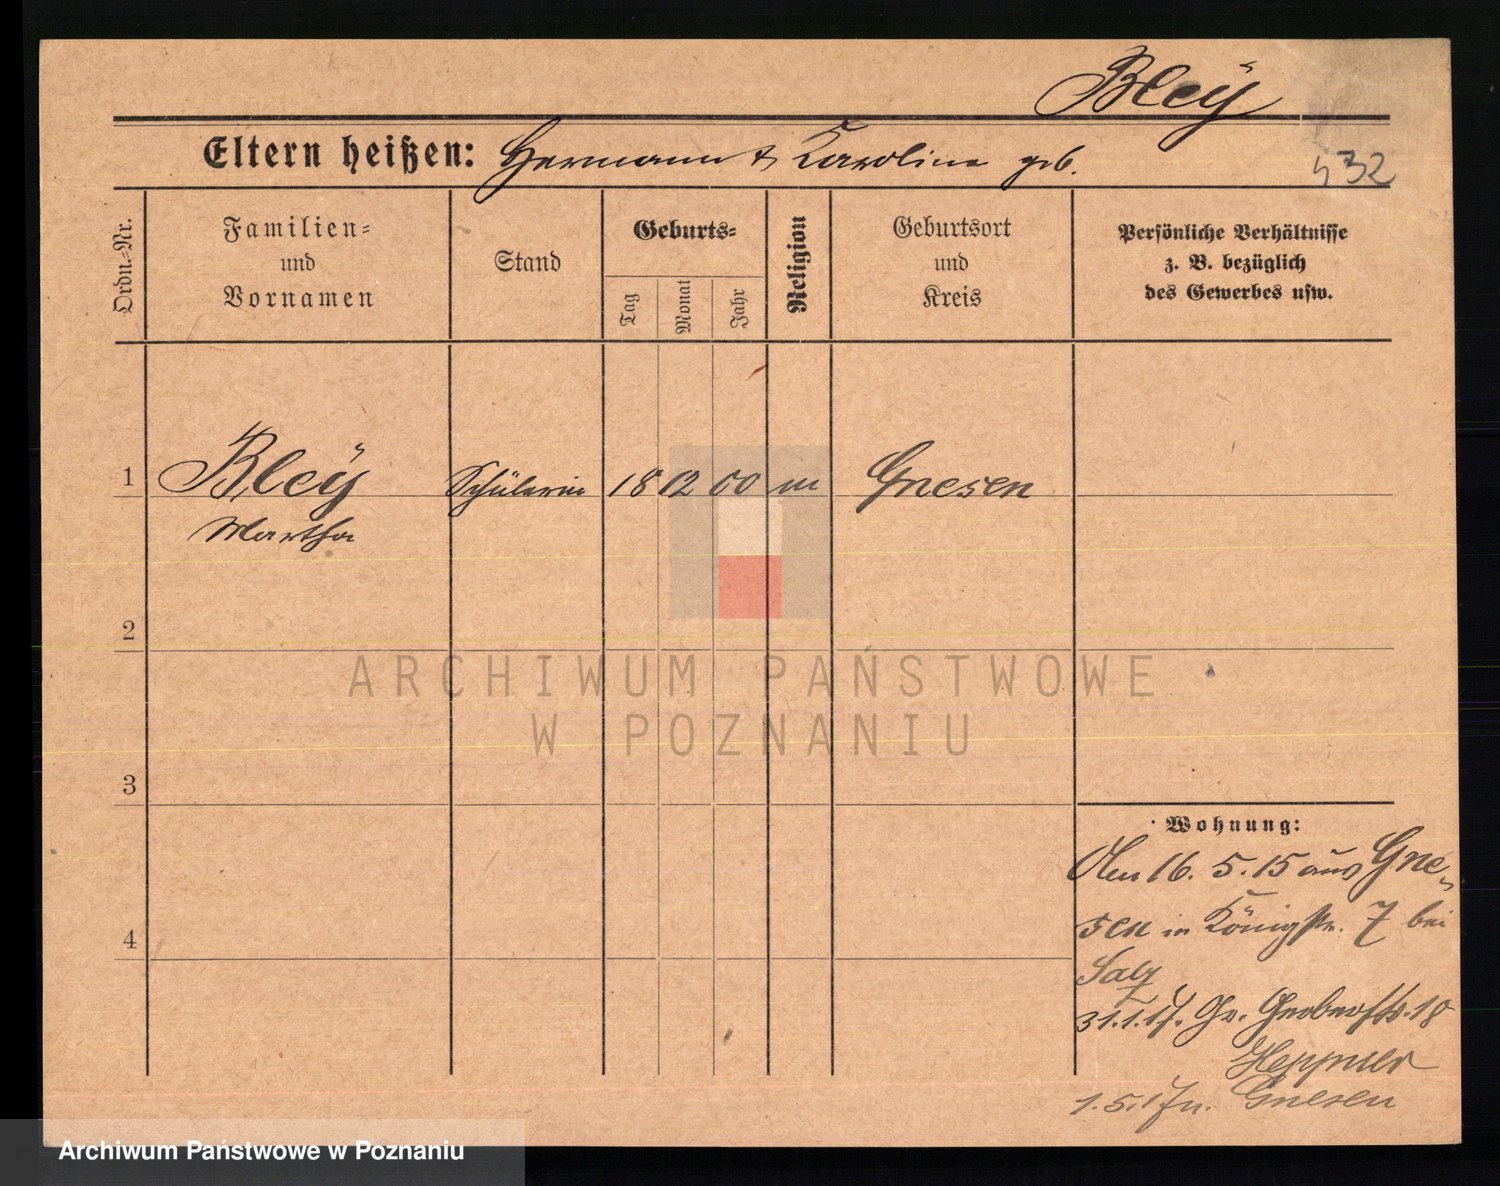 Bleÿ
Eltern heißen: Hermann & Karoline geb.
432
Ordn.-Nr.
Familien-
und
Vornamen
Stand
Geburts-
Tag
Monat
Jahr
Religion
Geburtsort
und
Kreis
Persönliche Verhältnisse
z. B. bezüglich
des Gewerbes usw.
1 Bleÿ Schülerin 18 12 00 Gnesen
Martha
2
ARCHIWUM PAŃSTWOWE
W POZNANIU
3
Wohnung:
16. 5. 15 aus Gne-
sen in Königstr. 7 bei
31.1.17. Gr. Gerberstr. 18
Heppner
1.5.17 n. Gnesen
4
Archiwum Państwowe w Poznaniu